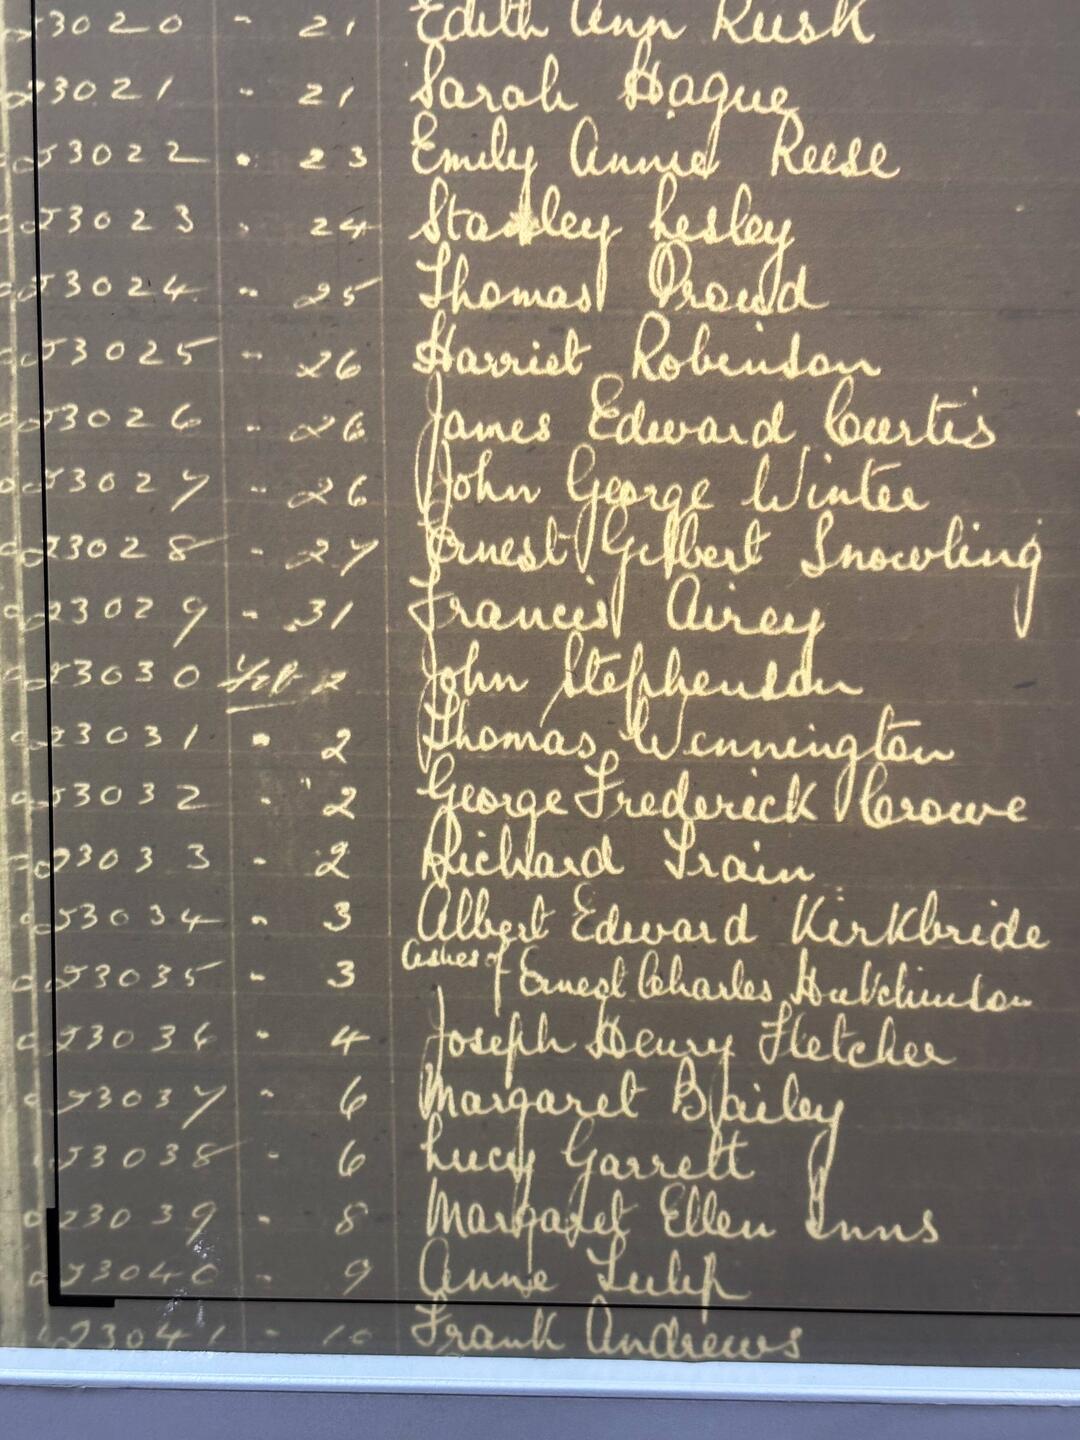 23020 " 21 Edith Ann Rusk
23021 " 21 Sarah Hague
23022 " 23 Emily Annie Reese
23023 " 24 Stanley Lesley
23024 " 25 Thomas Proud
23025 " 26 Harriet Robinson
23026 " 26 James Edward Curtis
23027 " 26 John George Winter
23028 " 27 Ernest Gilbert Snowling
23029 " 31 Francis Airey
23030 Feb 2 John Stephenson
23031 " 2 Thomas Wennington
23032 " 2 George Frederick Crowe
23033 " 2 Richard Train
23034 " 3 Albert Edward Kirkbride
23035 " 3 Ashes of Ernest Charles Hutchinson
23036 " 4 Joseph Henry Fletcher
23037 " 6 Margaret Bailey
23038 " 6 Lucy Garrett
23039 " 8 Margaret Ellen Inns
23040 " 9 Annie Tulip
23041 " 10 Frank Andrews